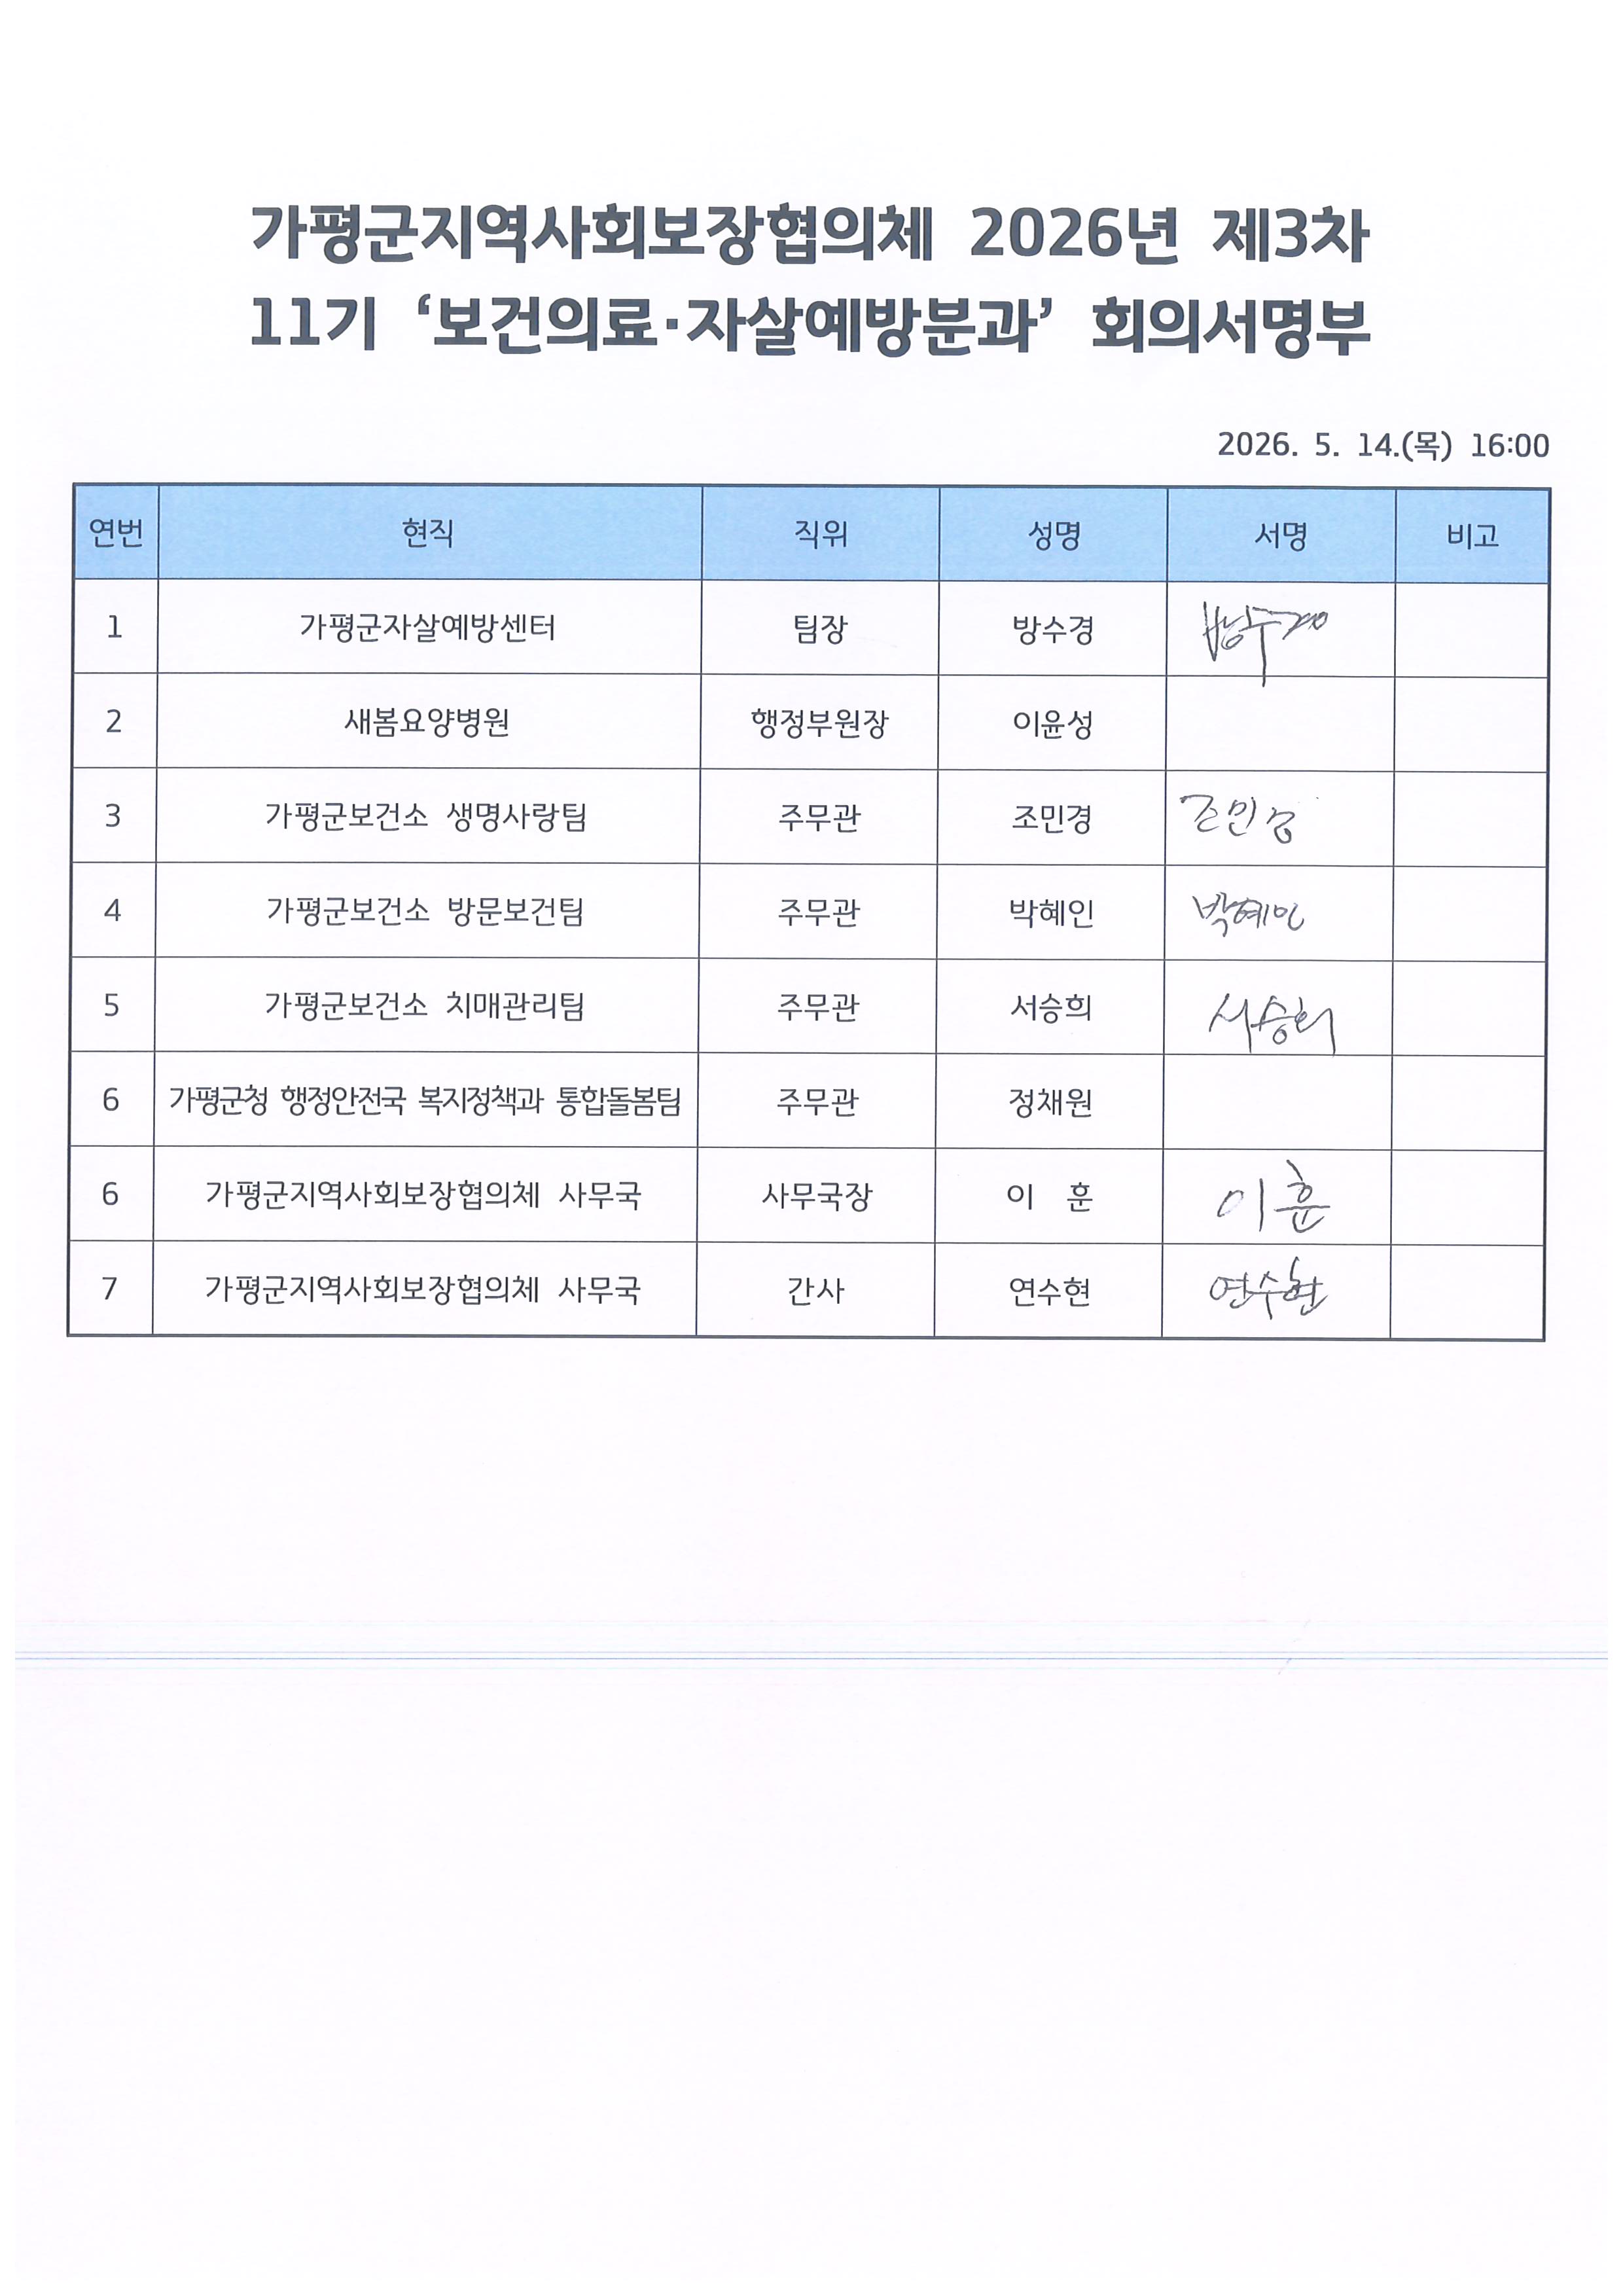 가평군지역사회보장협의체 2026년 제3차
11기 ‘보건의료·자살예방분과’ 회의서명부
2026. 5. 14.(목) 16:00
연번 현직 직위 성명 서명 비고
1 가평군자살예방센터 팀장 방수경 방수경
2 새봄요양병원 행정부원장 이윤성
3 가평군보건소 생명사랑팀 주무관 조민경 조민경
4 가평군보건소 방문보건팀 주무관 박혜인 박혜인
5 가평군보건소 치매관리팀 주무관 서승희 서승희
6 가평군청 행정안전국 복지정책과 통합돌봄팀 주무관 정채원
6 가평군지역사회보장협의체 사무국 사무국장 이 훈 이훈
7 가평군지역사회보장협의체 사무국 간사 연수현 연수현